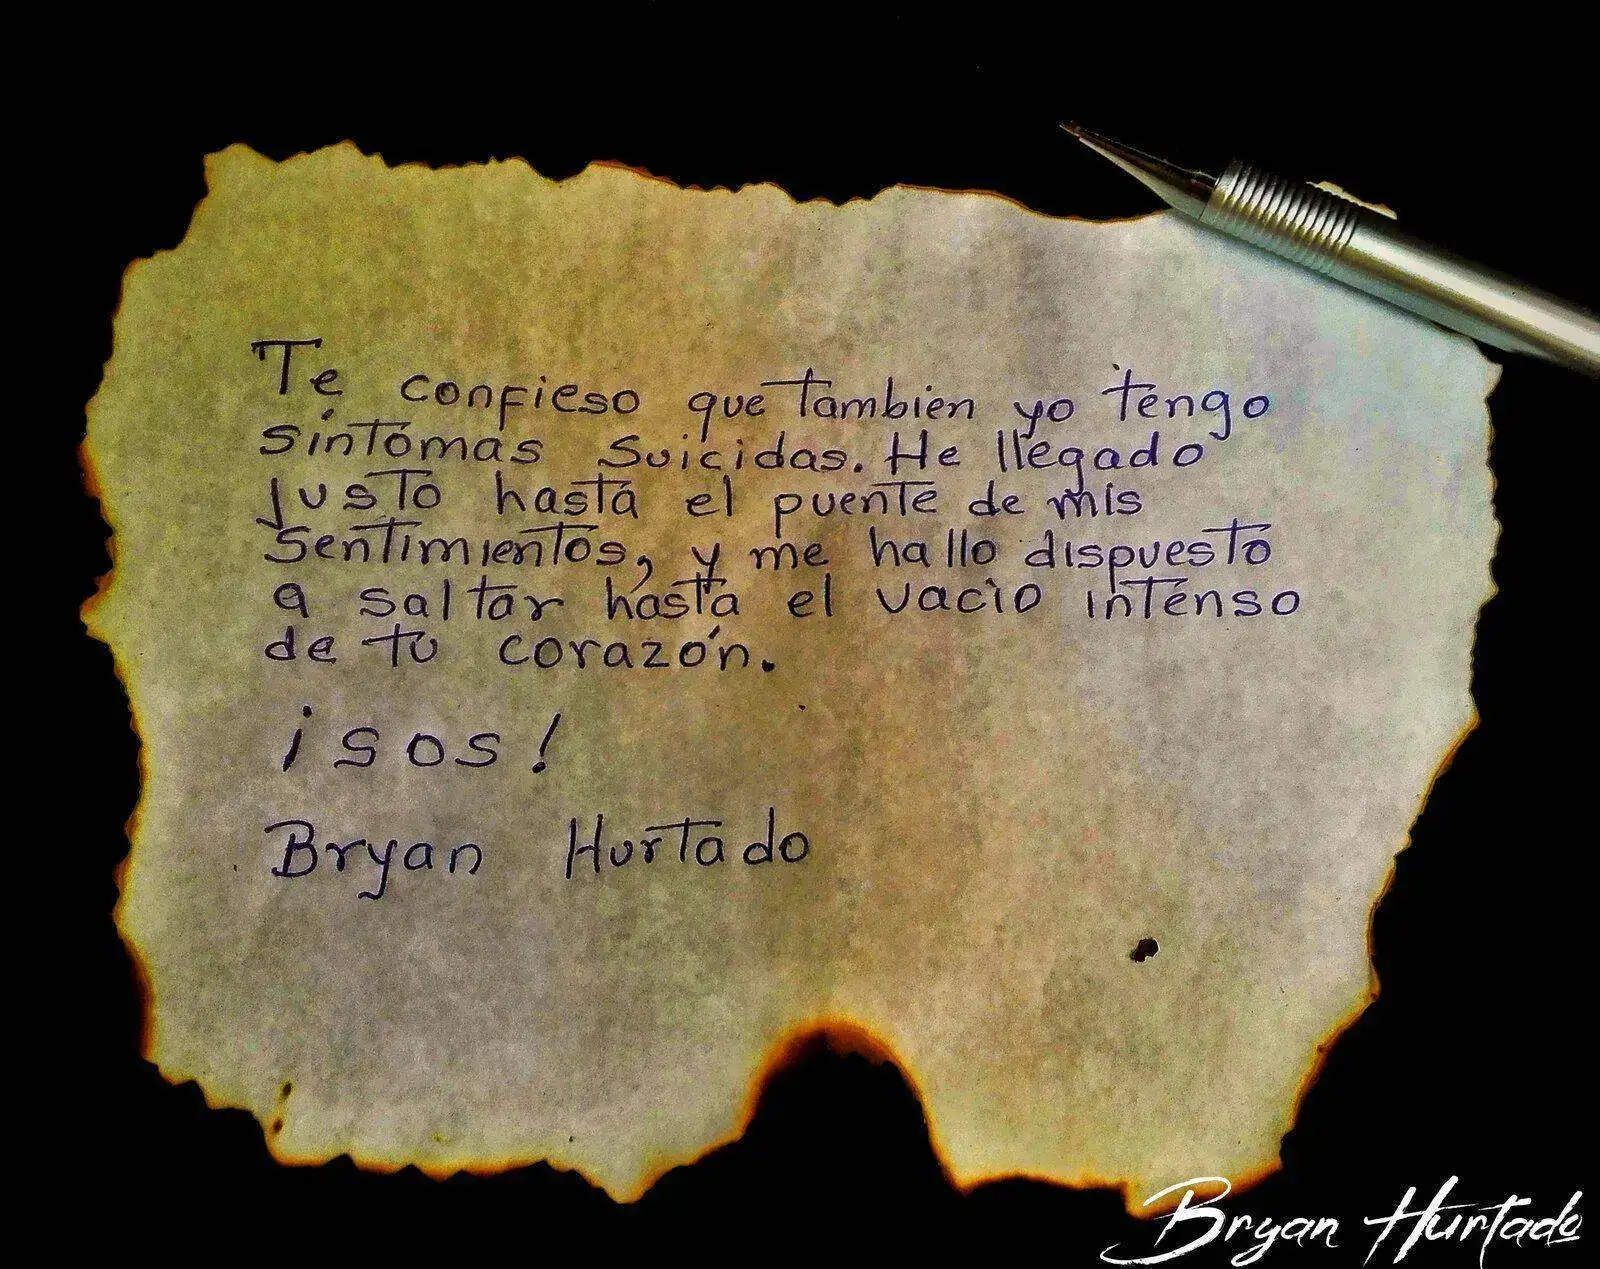 Te confieso que tambien yo tengo
síntomas suicidas. He llegado
justo hasta el puente de mis
sentimientos, y me hallo dispuesto
a saltar hasta el vacío intenso
de tu corazón.
¡SOS!
Bryan Hurtado
Bryan Hurtado